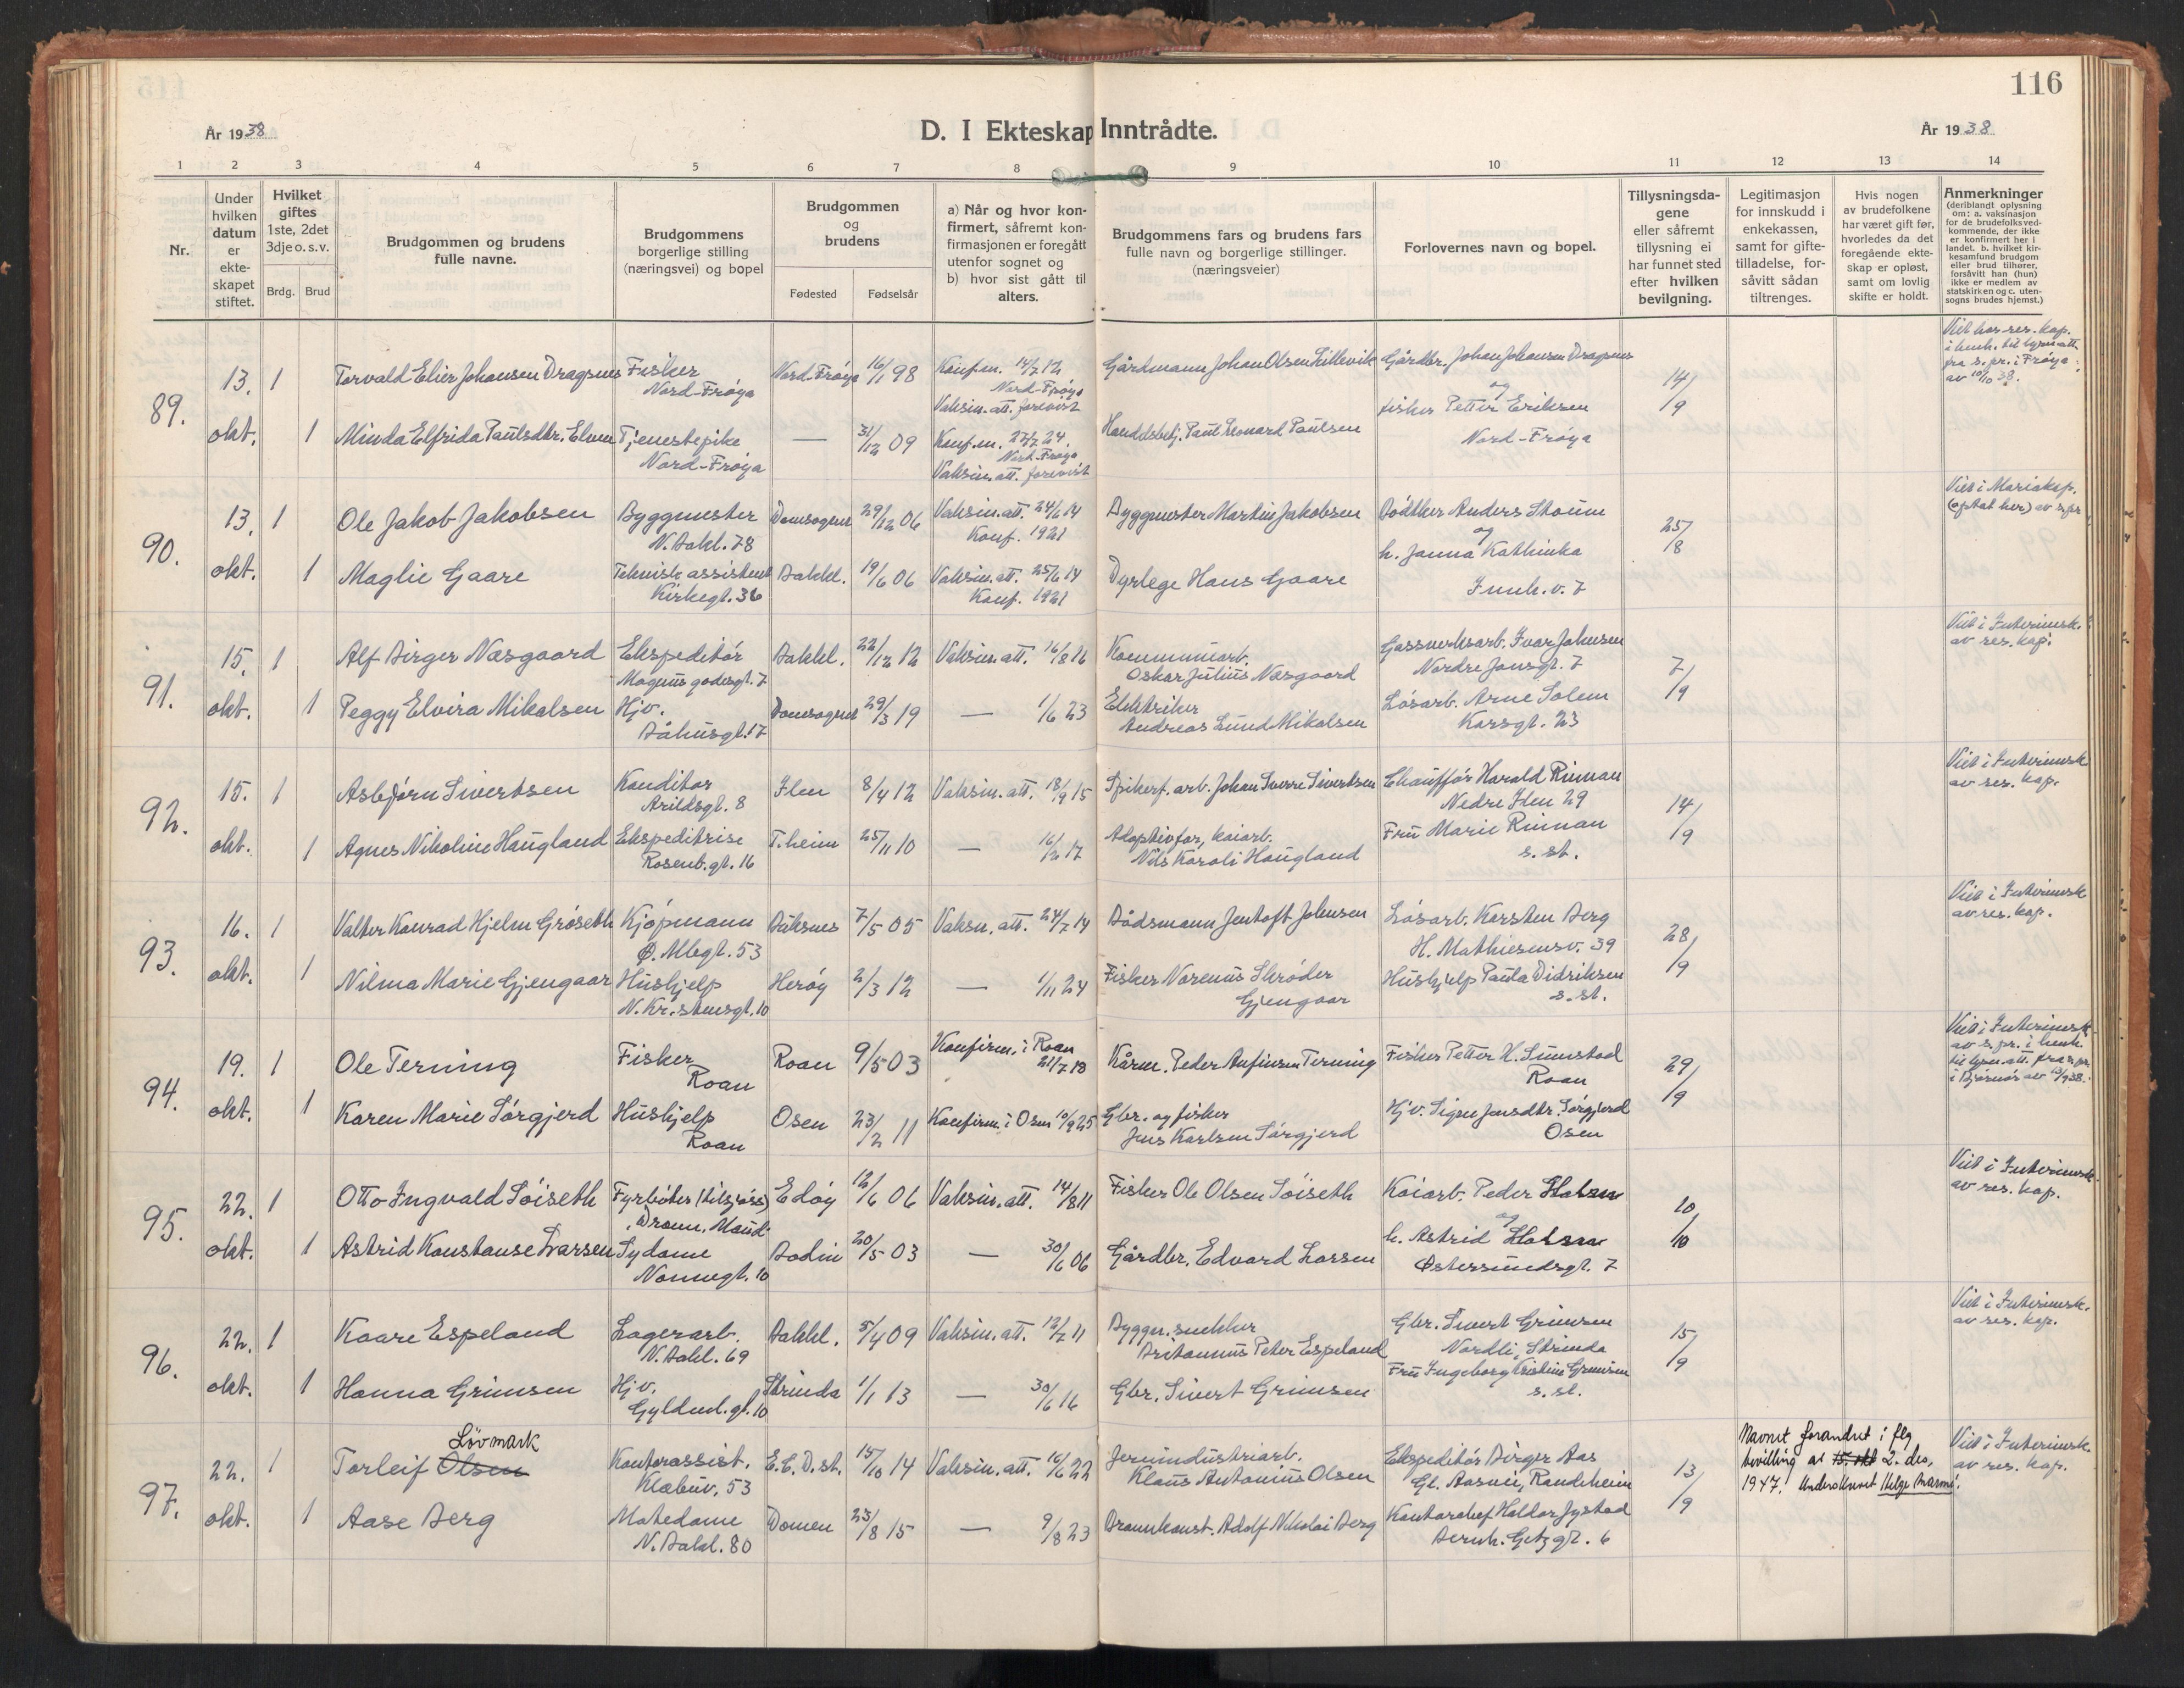 116
År 1938
D. I Ekteskap Inntrådte.
År 1938
1 2 3 4 5 6 7 8 9 10 11 12 13 14
Nr.
Under hvilken datum er ekte-skapet stiftet.
Hvilket giftes 1ste, 2det 3dje o. s. v.
Brdg. Brud
Brudgommen og brudens fulle navne.
Brudgommens borgerlige stilling (næringsvei) og bopel
Brudgommen og brudens
Fødested Fødselsår
a) Når og hvor kon-firmert, såfremt kon-firmasjonen er foregått utenfor sognet og b) hvor sist gått til alters.
Brudgommens fars og brudens fars fulle navn og borgerlige stillinger. (næringsveier)
Forlovernes navn og bopel.
Tillysningsda-gene eller såfremt tillysning ei har funnet sted efter hvilken bevilgning.
Legitimasjon for innskudd i enkekassen, samt for gifte-tilladelse, for-såvitt sådan tiltrenges.
Hvis nogen av brudefolkene har været gift før, hvorledes da det foregående ekte-skap er opløst, samt om lovlig skifte er holdt.
Anmerkninger (deriblandt oplysning om: a. vaksinasjon for de brudefolks ved-kommende, der ikke er konfirmert her i landet. b. hvilket kir-kesamfund brudgom eller brud tilhører, forsåvitt han (hun) ikke er medlem av statskirken og c. uten-sogns brudes hjemst.)
89.
13. 1 Torvald Elier Johansen Dragsnes Fisker Nord-Frøya Nord-Frøya 16/1 98 Konf.m. 14/7 12 Nord-Frøya Vaksin. att. forevist Gårdmann Johan Olsen Lillevik Gårdbr. Johan Johansen Dragsnes og 14/9 Viet hos res. kap. i henh. til lysn.att. fra s.pr. i Frøya av 10/10 38.
okt. 1 Minda Elfrida Paulsdtr. Elven Tjenestepike Nord-Frøya — 31/12 09 Konf.m. 27/7 24. Nord-Frøya Vaksin. att. forevist Handelsbetj. Paul Leonard Paulsen fisker Petter Eriksen Nord-Frøya
90.
13. 1 Ole Jakob Jakobsen Byggmester N. Bakl. 78 Domsognet 29/12 06 Vaksin. att. 24/6 14 Konf. 1921 Byggmester Martin Jakobsen Bødtker Anders Stoum og 25/8 Viet i Mariakap. (optat her) av s.pr
okt. 1 Maglie Gaare Teknisk assistent Kirkegt. 36 Bakkl. 19/6 06 Vaksin. att. 25/6 14 Konf. 1921 Dyrlege Hans Gaare h. Janna Kathinka Innh. v. 7
91.
15. 1 Alf Birger Næsgaard Ekspeditør Magnus godesgt. 7 Bakkl. 22/12 12 Vaksin. att. 16/8 16 Kommunearb. Oskar Julius Næsgaard Gassverksarb. Ivar Johnsen Nordre Jonsgt. 7 7/9 Viet i Interimsk. av res. kap.
okt. 1 Peggy Elvira Mikalsen Hjv. Båhusgt. 17 Domsognet 29/3 19 — 1/6 23 Elektriker Andreas Lund Mikalsen Løsarb. Arne Solem Korsgt. 23
92.
15. 1 Asbjørn Sivertsen Konditor Arildsgt. 8 Ilen 8/4 12 Vaksin. att. 18/9 15 Spikerf. arb. Johan Sverre Sivertsen Chauffør Harald Rinnan Nedre Ilen 29 14/9 Viet i Interimsk av res. kap.
okt. 1 Agnes Nikoline Haugland Ekspeditrise Rosenb. gt. 16 T.heim 25/11 10 — 16/6 17 Adoptivfar, kaiarb. Nils Karoli Haugland Fru Marie Rinnan s. st.
93.
16. 1 Valter Konrad Hjelm Grøseth Kjøpmann Ø. Møllegt. 53 Buksnes 7/5 05 Vaksn. att. 24/7 14 Bådsmann Jentoft Johnsen Løsarb. Karsten Berg H. Mathiesensv. 39 28/9 Viet i Interimsk av res. kap.
okt. 1 Nilma Marie Gjengaar Hushjelp N. Kr.stensgt. 10 Herøy 2/3 12 — 1/11 24 Fisker Norenus Skrøder Gjengaar Hushjelp Paula Didriksen s. st.
94.
19. 1 Ole Terning Fisker Roan Roan 9/5 03 Konfirm. i Roan 21/7 18 Kårm. Peder Anfinsen Terning Fisker Petter H. Sumstad Roan 29/9 Viet i Interimsk. av s.pr. i henh. til lysn. att. fra s.pr. i Bjørnør av 13/9 38.
okt. 1 Karen Marie Sørgjerd Hushjelp Roan Osen 23/2 11 Konfirm. i Osen 10/9 25 Gbr. og fisker Jens Karlsen Sørgjerd Hjv. Signe Jensdtr. Sørgjerd Osen
95.
22. 1 Otto Ingvald Søiseth Fyrbøter (tilsjøss) Dronn. Maud Edøy 12/6 06 Vaksin. att. 14/8 11 Fisker Ole Olsen Søiseth Kaiarb. Peder Holsen og 10/10 Viet i Interimsk. av res. kap.
okt. 1 Astrid Konstanse Larsen Sydame Nonnegt. 10 Bodin 20/5 03 — 30/6 06 Gårdbr. Edvard Larsen h. Astrid Holsen Østersundsgt. 7
96.
22. 1 Kaare Espeland Lagerarb. N. Bakl. 69 Bakkl. 5/4 09 Vaksin. att. 12/7 11 Byggn. snekker Britannus Peter Espeland Gbr. Sivert Grimsen Nardli, Strinda 15/9 Viet i Interimsk. av res. kap.
okt. 1 Hanna Grimsen Hjv. Gyldenl. gt. 10 Strinda 1/1 13 — 30/6 16 Gbr. Sivert Grimsen Fru Ingeborg Kristine Grimsen s. st.
97.
22. 1 Torleif Olsen Lövmark Kontorassist. Klæbuv. 53 E.C.D. st. 15/10 14 Vaksin. att. 16/6 22 Jernindustriarb. Klaus Antonius Olsen Ekspeditør Birger Aas Gl. Aasvei, Randheim 13/9 Navnet forandret i flg bevilling av 15. okt 2. des. 1947. Underskrevet Helge Marmø. Viet i Interimsk. av res. kap.
okt. 1 Aase Berg Motedame N. Bakl. 80 Domen 23/8 15 — 9/8 23 Brannkonst. Adolf Nikolai Berg Kontorchef Haldor Jystad Bernh. Getz gt. 6